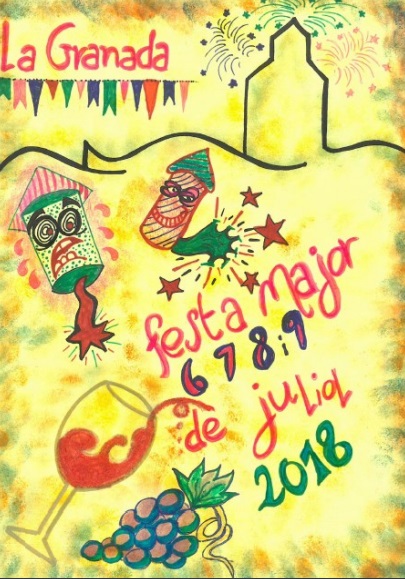 La Granada
festa major
6 7 8 i 9
de juliol
2018